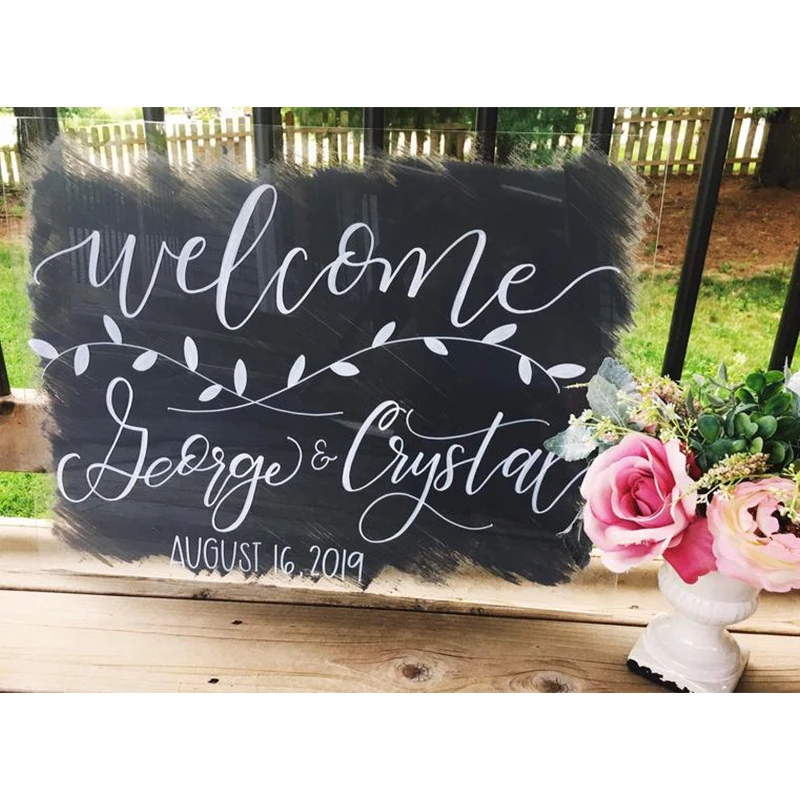 welcome
George & Crystal
AUGUST 16, 2019